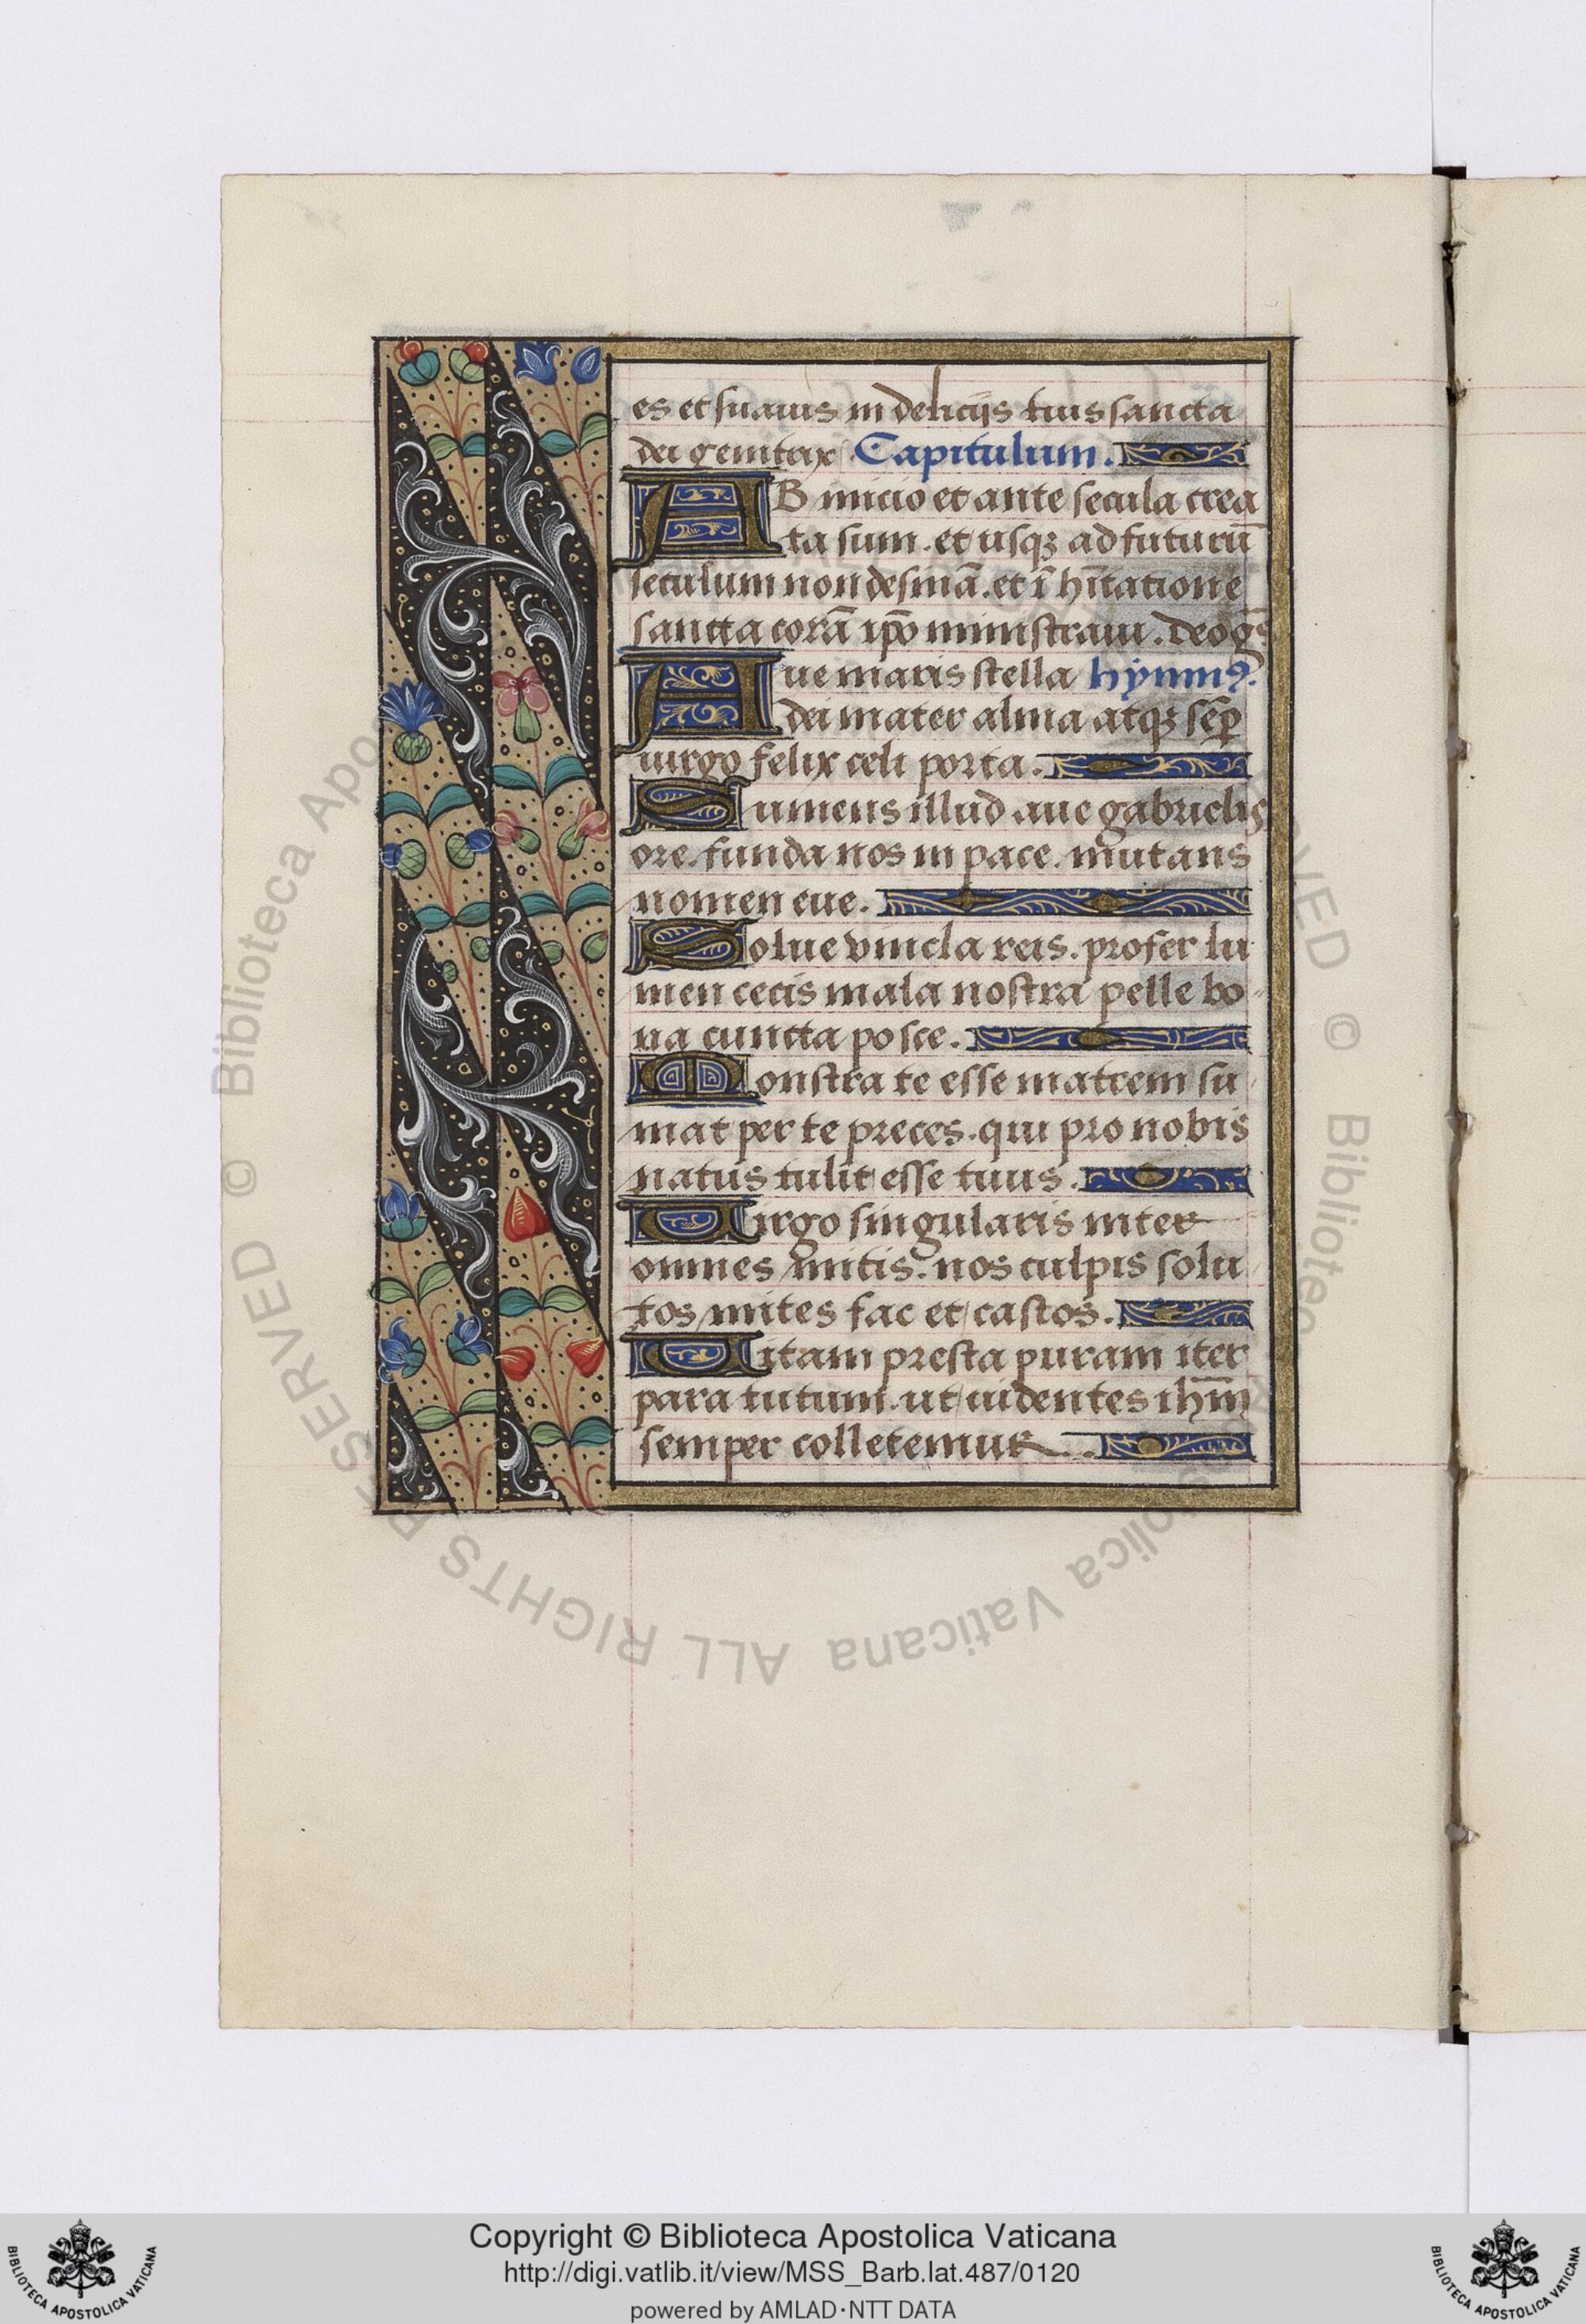 es et suauis in delicijs tuis sancta
dei genitrix Capitulum.
AB inicio et ante secula crea
ta sum. et usqꝫ ad futurū
seculum non desinā. et ī hītatione
sancta corā ip̄o ministraui. deo gs̄
Aue maris stella hymnꝰ.
dei mater alma atqꝫ sēp
uirgo felix celi porta.
Sumens illud aue gabrielis
ore. funda nos in pace. mutans
nomen eue.
Solue vincla reis. profer lu
men cecis mala nostra pelle bo
na cuncta posce.
Monstra te esse matrem su
mat per te preces. qui pro nobis
natus tulit esse tuus.
Uirgo singularis inter
omnes mitis. nos culpis solu
tos mites fac et castos.
Uitam presta puram iter
para tutum. ut uidentes ihm̄
semper colletemur
© Biblioteca Apostolica Vaticana ALL RIGHTS RESERVED
Copyright © Biblioteca Apostolica Vaticana
http://digi.vatlib.it/view/MSS_Barb.lat.487/0120
powered by AMLAD·NTT DATA
BIBLIOTECA APOSTOLICA VATICANA
BIBLIOTECA APOSTOLICA VATICANA